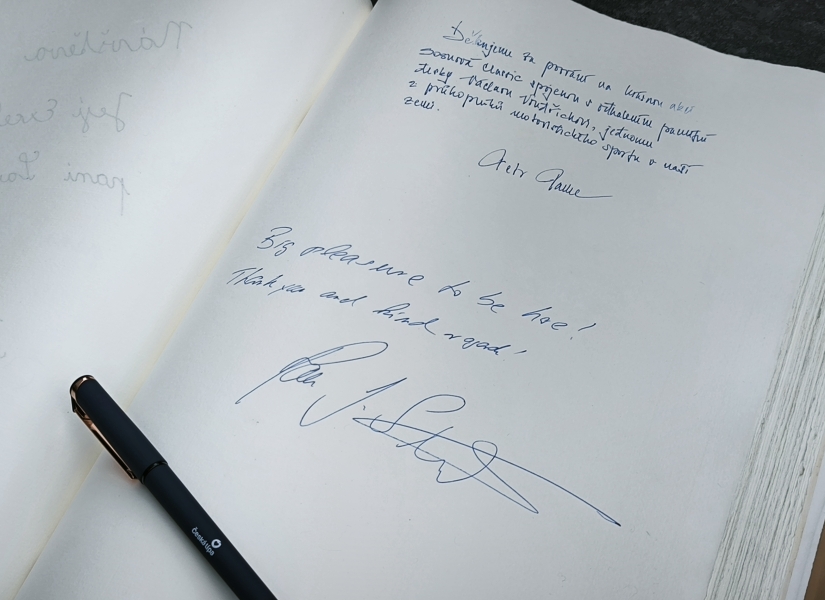 Návštěva
Její
paní
Děkujeme za pozvání na krásnou akci
Sosnová Classic spojenou s odhalením pamětní
desky Václavu Vondřichovi, jednomu
z průkopníků motoristického sportu v naší
zemi.
Petr
Big pleasure to be here!
Thank you and kind regards!
Českálípa